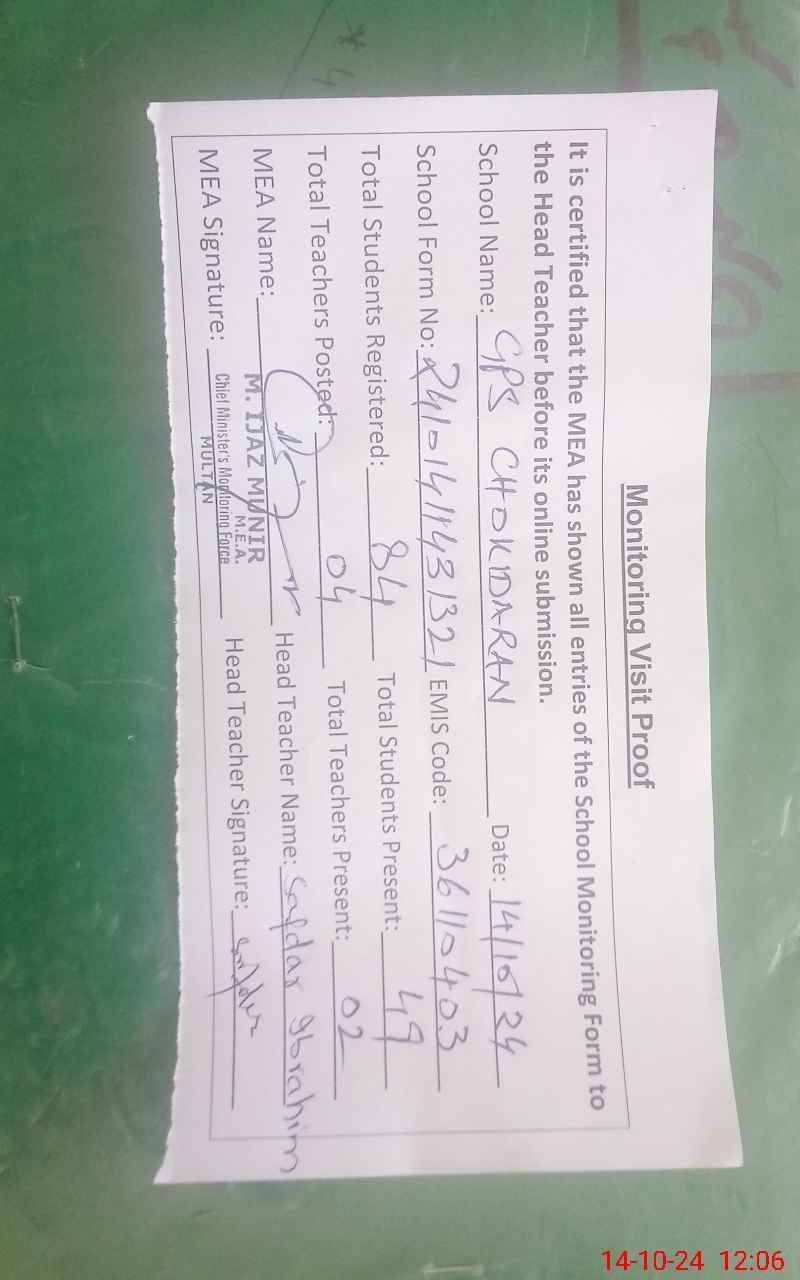 Monitoring Visit Proof
It is certified that the MEA has shown all entries of the School Monitoring Form to
the Head Teacher before its online submission.
School Name: GPS CHOKIDARAN Date: 14/10/24
School Form No: 24101411431321 EMIS Code: 36110403
Total Students Registered: 84 Total Students Present: 49
Total Teachers Posted: 04 Total Teachers Present: 02
MEA Name: M. IJAZ MUNIR Head Teacher Name: Safdar Ibrahim
M.E.A.
MEA Signature: Chief Minister's Monitoring Force Head Teacher Signature: Safdar
MULTAN
14-10-24 12:06